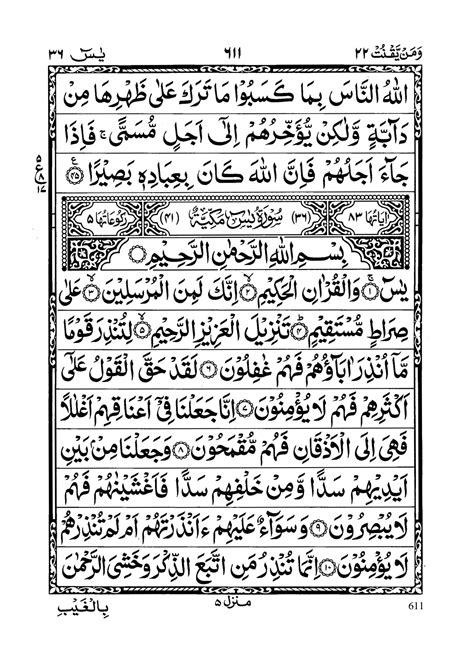 وَمَنْ يَّقْنُتْ ٢٢ ٦١١ يٰسٓ ٣٦
اللهُ النَّاسَ بِمَا كَسَبُوْا مَا تَرَكَ عَلٰى ظَهْرِهَا مِنْ
دَآبَّةٍ وَّلٰكِنْ يُّؤَخِّرُهُمْ اِلٰٓى اَجَلٍ مُّسَمًّى ۚ فَاِذَا
جَآءَ اَجَلُهُمْ فَاِنَّ اللهَ كَانَ بِعِبَادِهٖ بَصِيْرًا ۝٤٥
٥ ع ٨ ١٧
اٰيَاتُهَا ٨٣ (٣٦) سُوْرَةُ يٰسٓ مَكِّيَّةٌ (٤١) رُكُوْعَاتُهَا ٥
بِسْمِ اللهِ الرَّحْمٰنِ الرَّحِيْمِ ۝
يٰسٓ ۝١ وَالْقُرْاٰنِ الْحَكِيْمِ ۝٢ اِنَّكَ لَمِنَ الْمُرْسَلِيْنَ ۝٣ عَلٰى
صِرَاطٍ مُّسْتَقِيْمٍ ۝٤ تَنْزِيْلَ الْعَزِيْزِ الرَّحِيْمِ ۝٥ لِتُنْذِرَ قَوْمًا
مَّآ اُنْذِرَ اٰبَآؤُهُمْ فَهُمْ غٰفِلُوْنَ ۝٦ لَقَدْ حَقَّ الْقَوْلُ عَلٰٓى
اَكْثَرِهِمْ فَهُمْ لَا يُؤْمِنُوْنَ ۝٧ اِنَّا جَعَلْنَا فِيْٓ اَعْنَاقِهِمْ اَغْلٰلًا
فَهِيَ اِلَى الْاَذْقَانِ فَهُمْ مُّقْمَحُوْنَ ۝٨ وَجَعَلْنَا مِنْۢ بَيْنِ
اَيْدِيْهِمْ سَدًّا وَّمِنْ خَلْفِهِمْ سَدًّا فَاَغْشَيْنٰهُمْ فَهُمْ
لَا يُبْصِرُوْنَ ۝٩ وَسَوَآءٌ عَلَيْهِمْ ءَاَنْذَرْتَهُمْ اَمْ لَمْ تُنْذِرْهُمْ
لَا يُؤْمِنُوْنَ ۝١٠ اِنَّمَا تُنْذِرُ مَنِ اتَّبَعَ الذِّكْرَ وَخَشِيَ الرَّحْمٰنَ
بِالْغَيْبِ منزل ٥ 611